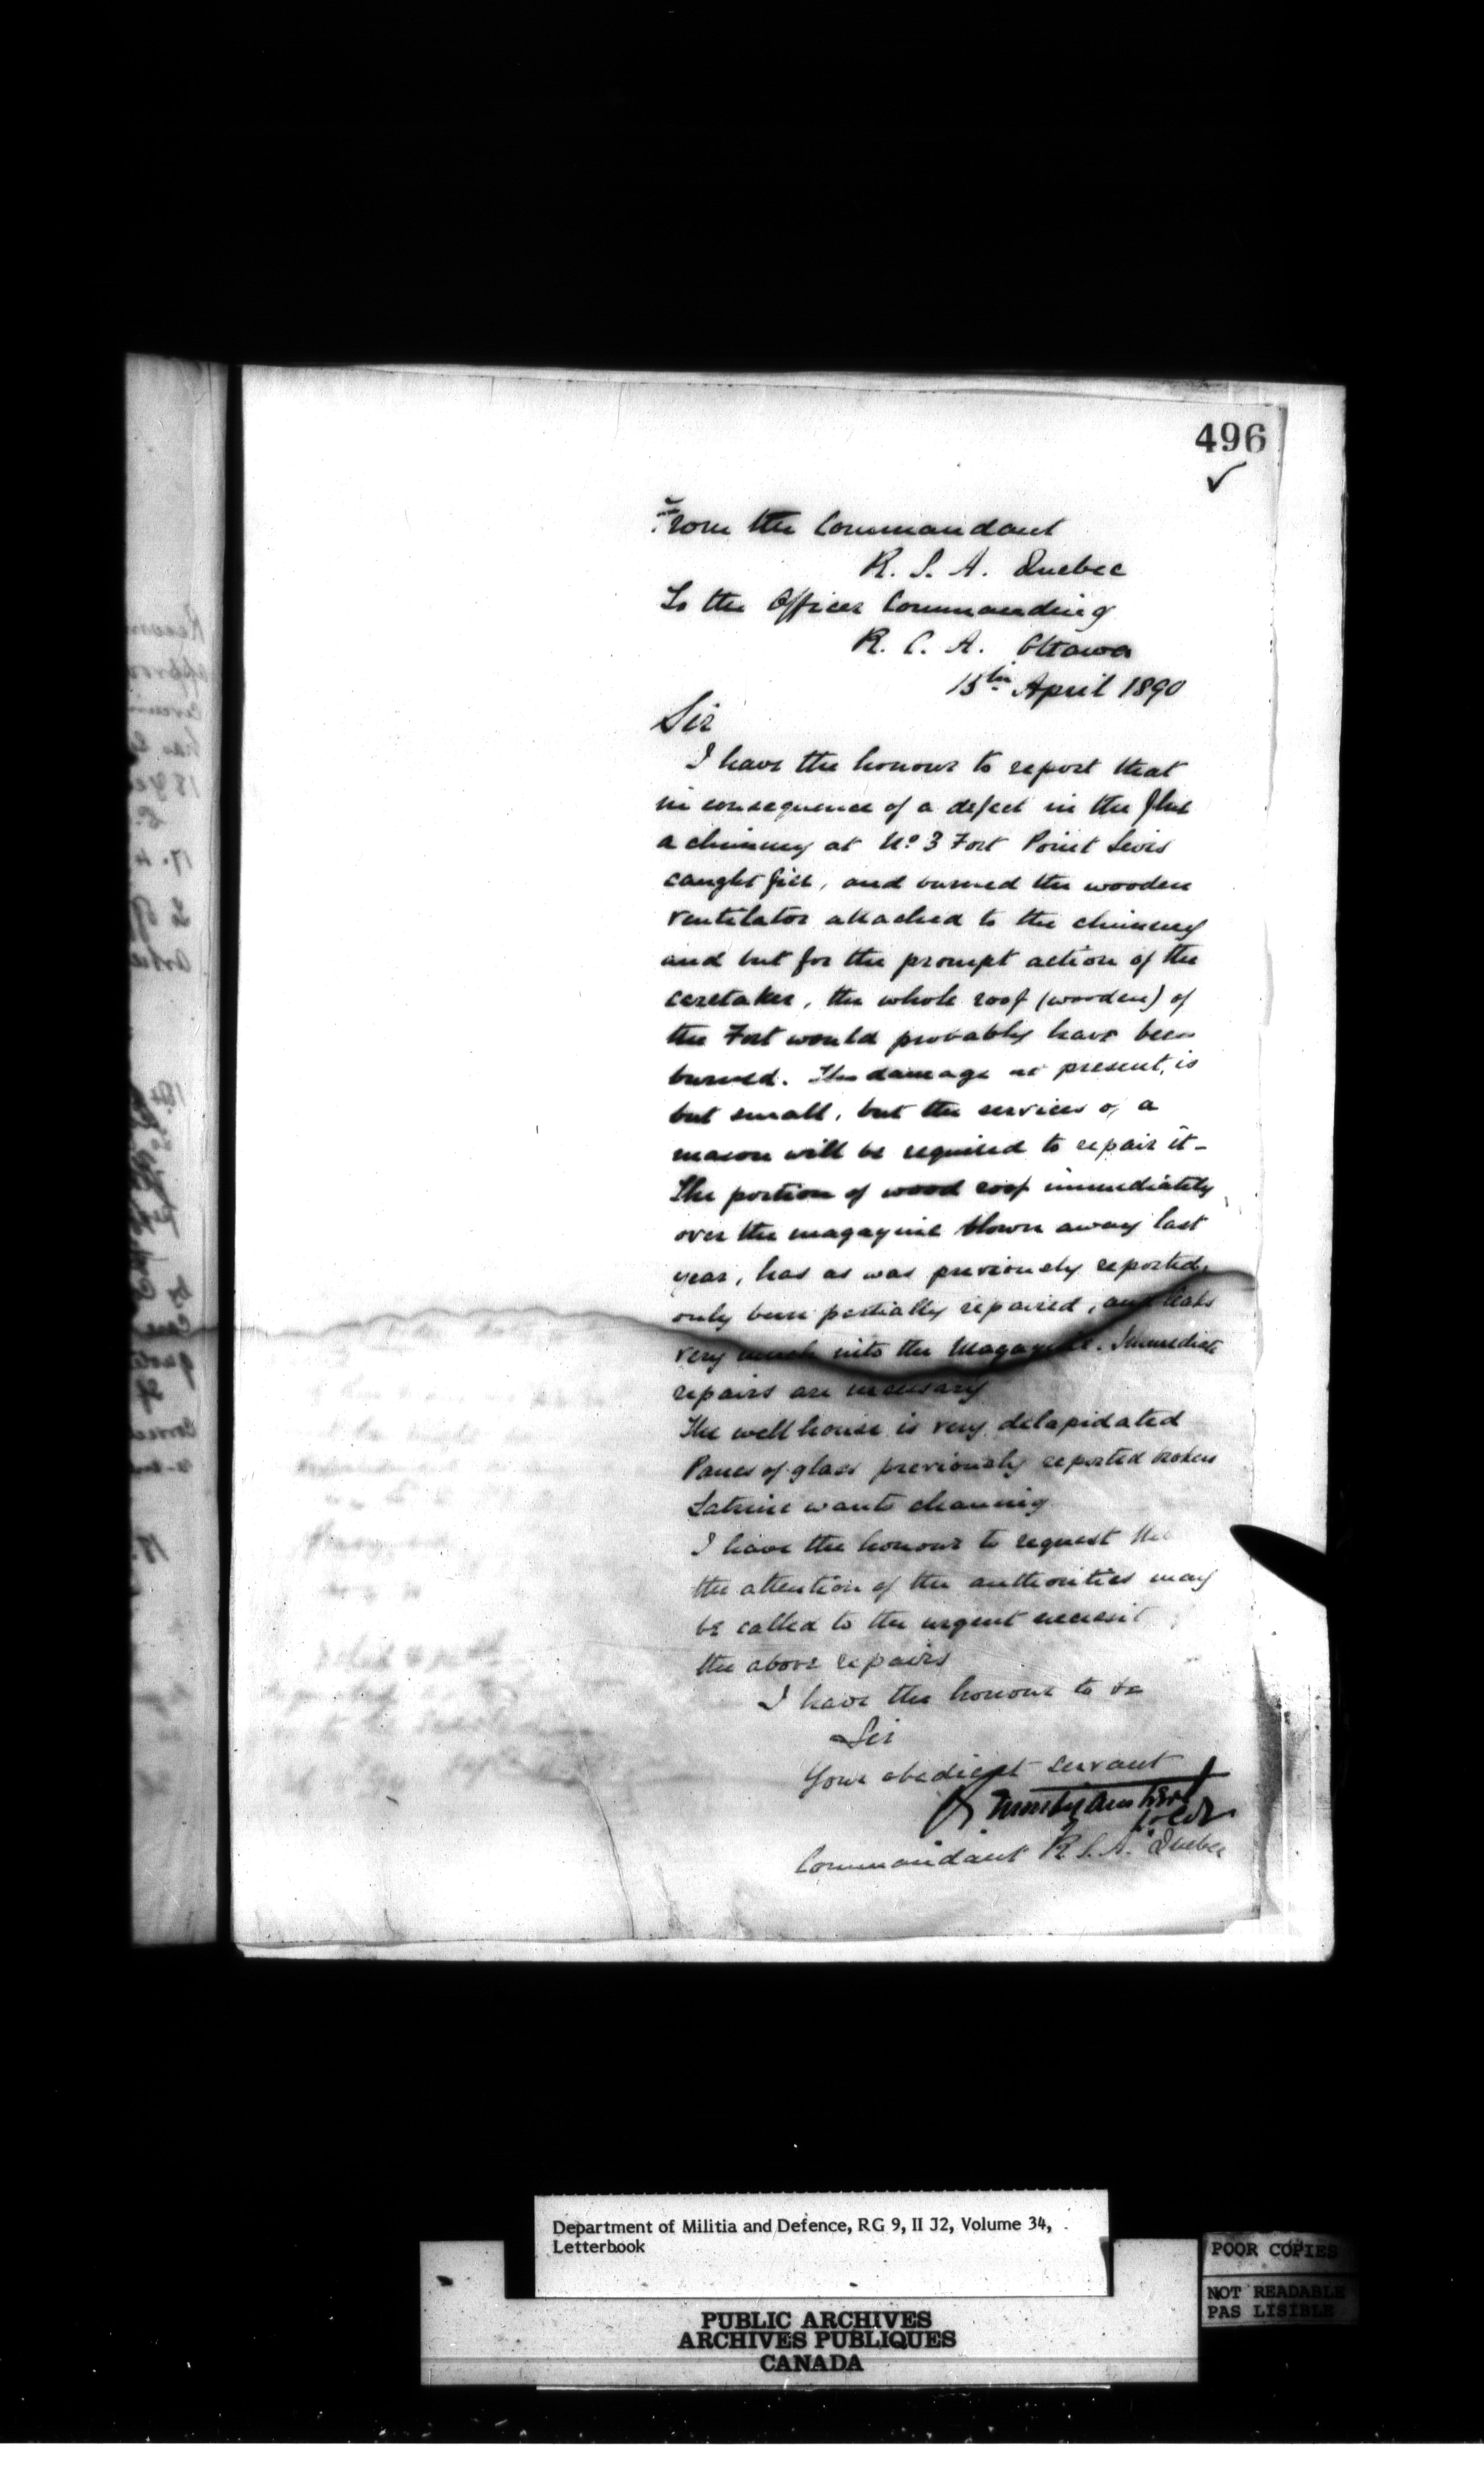 496
From the Commandant
R. S. A. Quebec
To the Officer Commanding
R. C. A. Ottawa
15th April 1890
Sir
I have the honour to report that
in consequence of a defect in the flue
a chimney at No 3 Fort Point Levis
caught fire, and burned the wooden
ventilator attached to the chimney
and but for the prompt action of the
caretaker, the whole roof (wooden) of
the Fort would probably have been
burned. The damage at present, is
but small, but the services of a
mason will be required to repair it -
The portion of wood roof immediately
over the magazine blown away last
year, has as was previously reported,
only been partially repaired, and leaks
very much into the Magazine. Immediate
repairs are necessary
The well house is very delapidated
Panes of glass previously reported broken
Latrine wants cleaning
I have the honour to request
the attention of the authorities may
be called to the urgent
the above repairs
I have the honour to be
Sir
Your obedient servant
Lt Col
Commandant R. S. A. Quebec
Department of Militia and Defence, RG 9, II J2, Volume 34,
Letterbook
PUBLIC ARCHIVES
ARCHIVES PUBLIQUES
CANADA
POOR COPIES
NOT READABLE
PAS LISIBLE